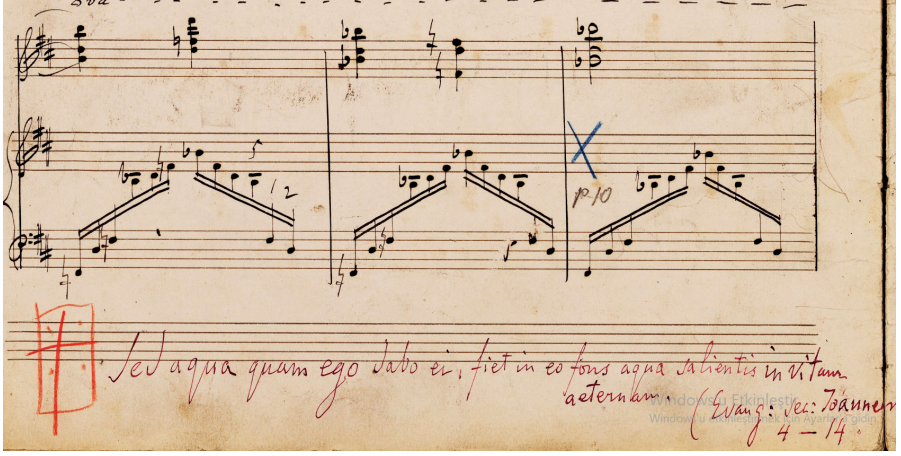 8va
5
1 2
p. 10
5
Sed aqua quam ego dabo ei, fiet in eo fons aqua salientis in vitam
aeternam. (Evang: sec: Joannem
4 – 14
Windows'u Etkinleştir
Windows'u etkinleştirmek için Ayarlar'a gidin.